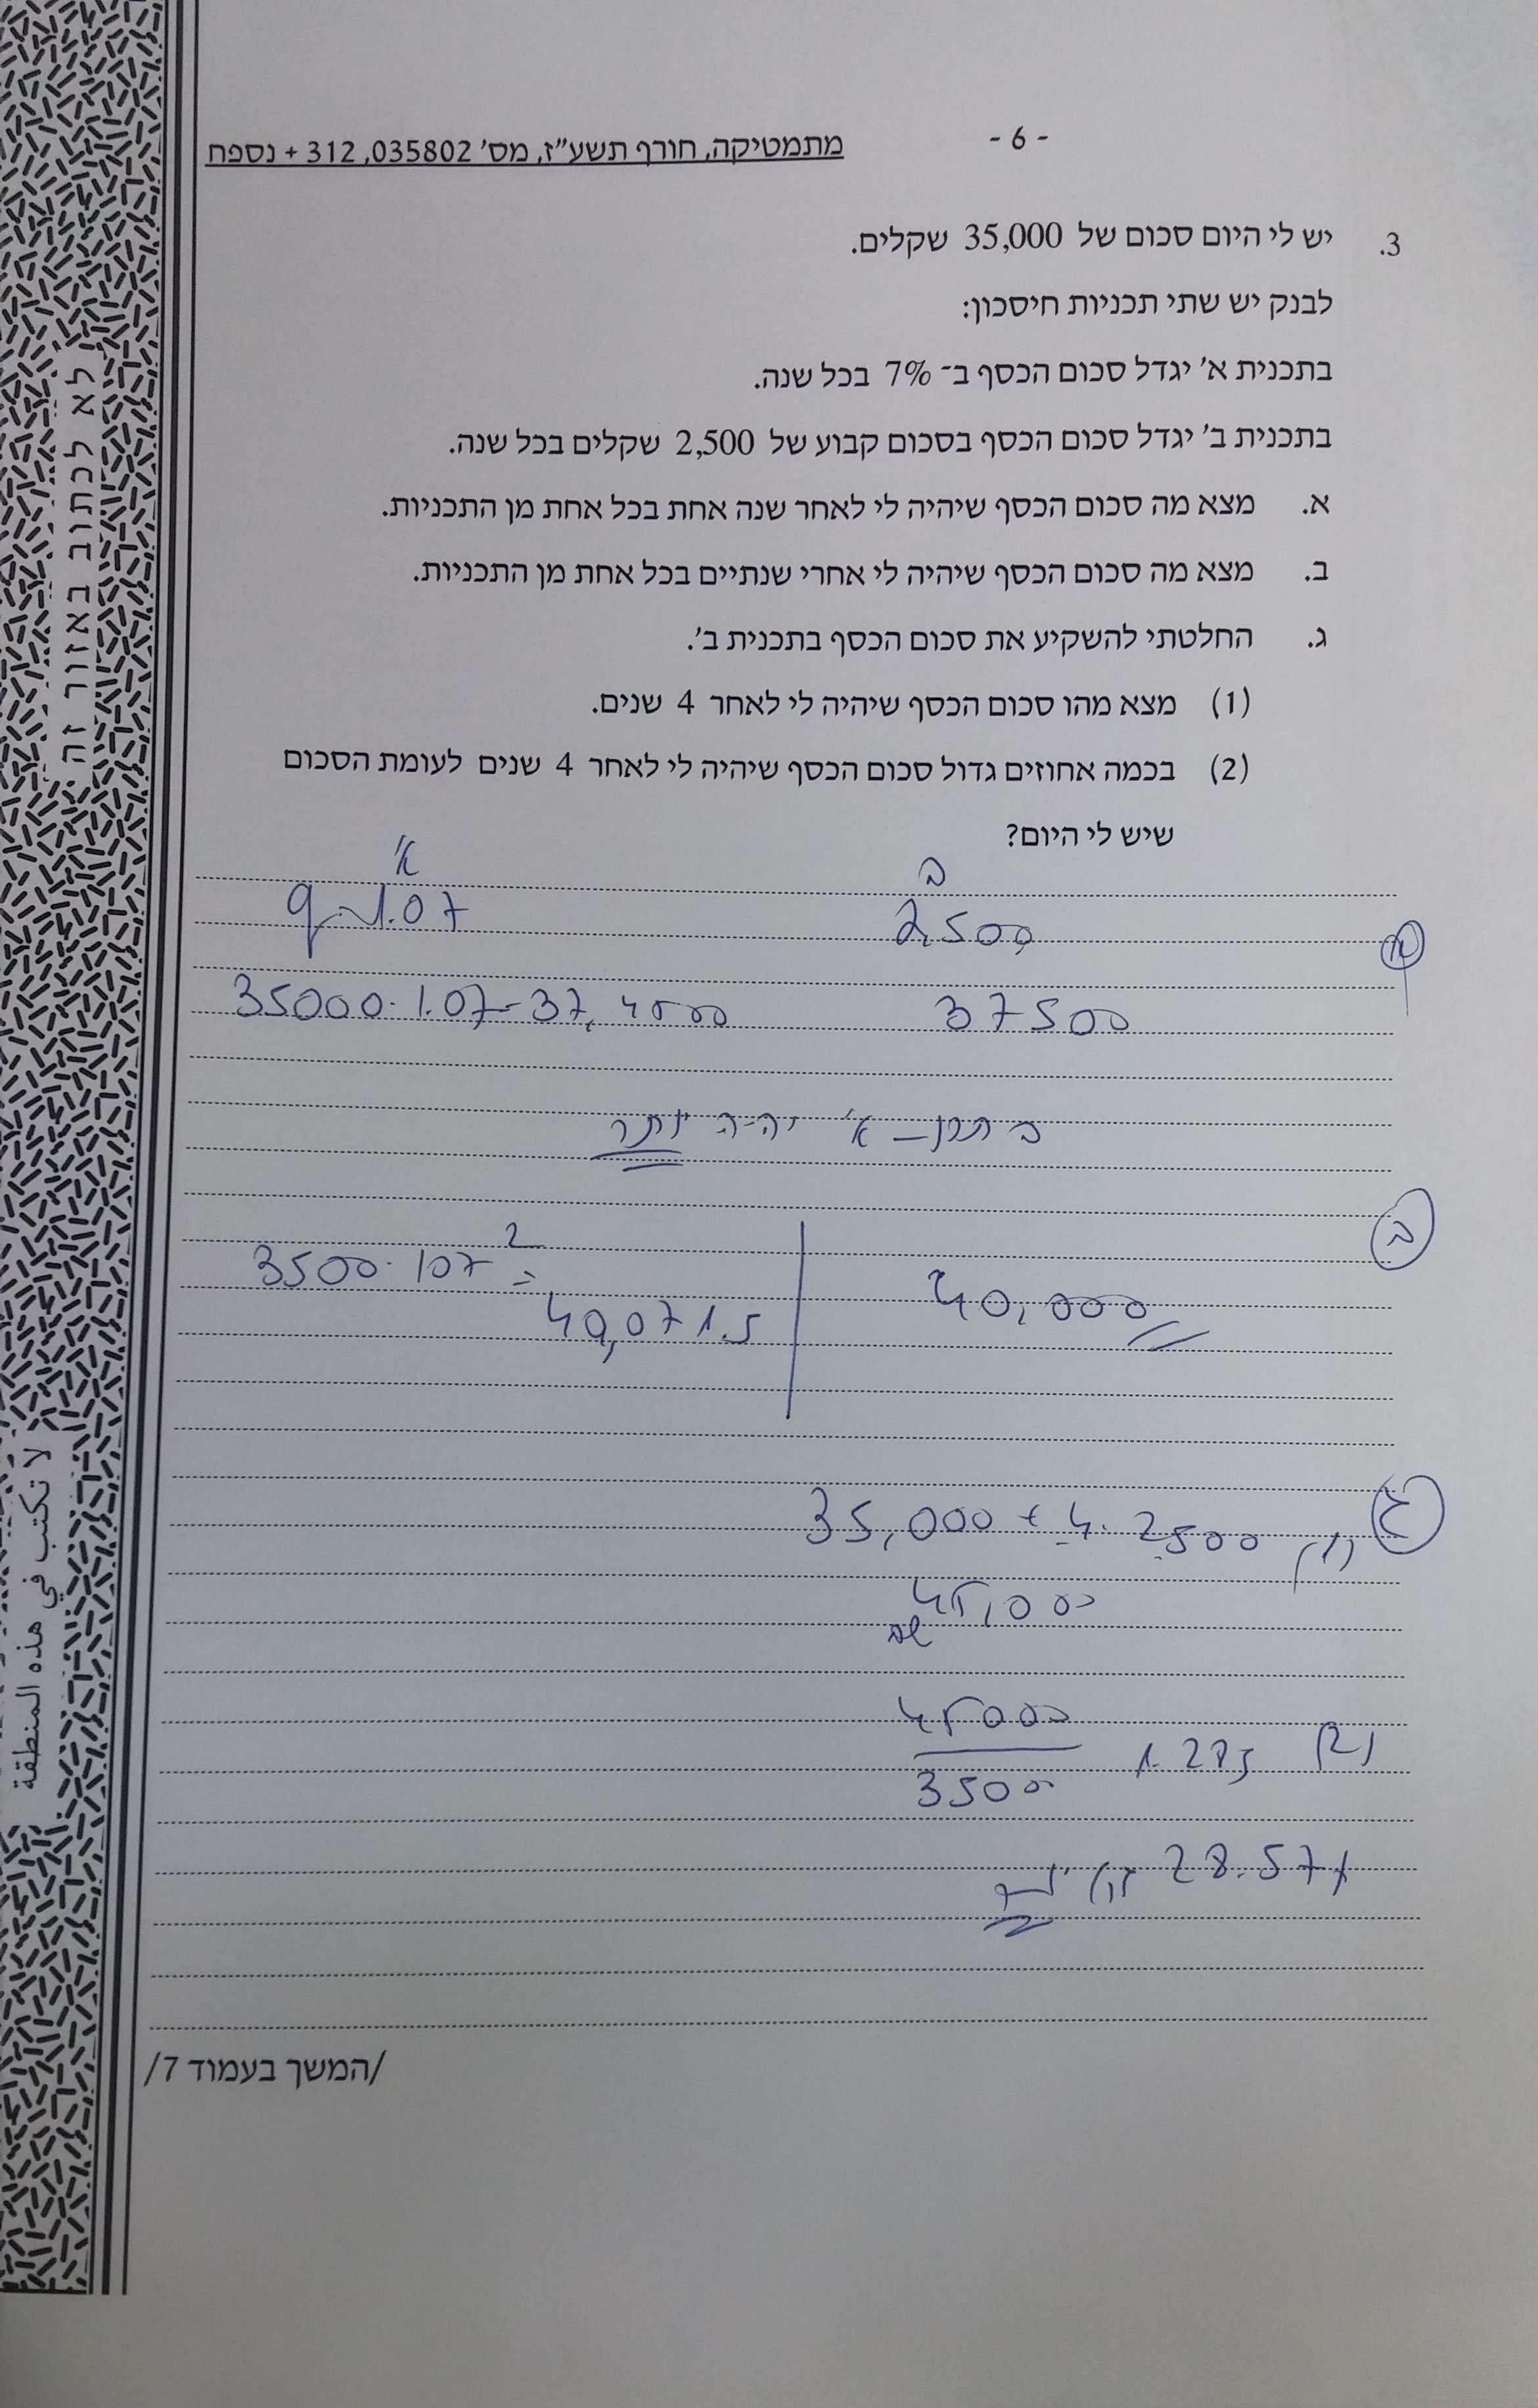 מתמטיקה, חורף תשע"ז, מס' 035802, 312 + נספח
- 6 -
3. יש לי היום סכום של 35,000 שקלים.
לבנק יש שתי תכניות חיסכון:
בתכנית א' יגדל סכום הכסף ב־ 7% בכל שנה.
בתכנית ב' יגדל סכום הכסף בסכום קבוע של 2,500 שקלים בכל שנה.
א. מצא מה סכום הכסף שיהיה לי לאחר שנה אחת בכל אחת מן התכניות.
ב. מצא מה סכום הכסף שיהיה לי אחרי שנתיים בכל אחת מן התכניות.
ג. החלטתי להשקיע את סכום הכסף בתכנית ב'.
(1) מצא מהו סכום הכסף שיהיה לי לאחר 4 שנים.
(2) בכמה אחוזים גדול סכום הכסף שיהיה לי לאחר 4 שנים לעומת הסכום
שיש לי היום?
ב א'
א 2,500 q=1.07
37500 35000·1.07=37,4500
א' יהיה יותר
ב 40,000 3500·107²=
40,071.5
ג (1) 35,000+4·2500
45,000
(2) 45000
3500
28.57%
/המשך בעמוד 7/
לא לכתוב באזור זה
لا تكتب في هذه المنطقة